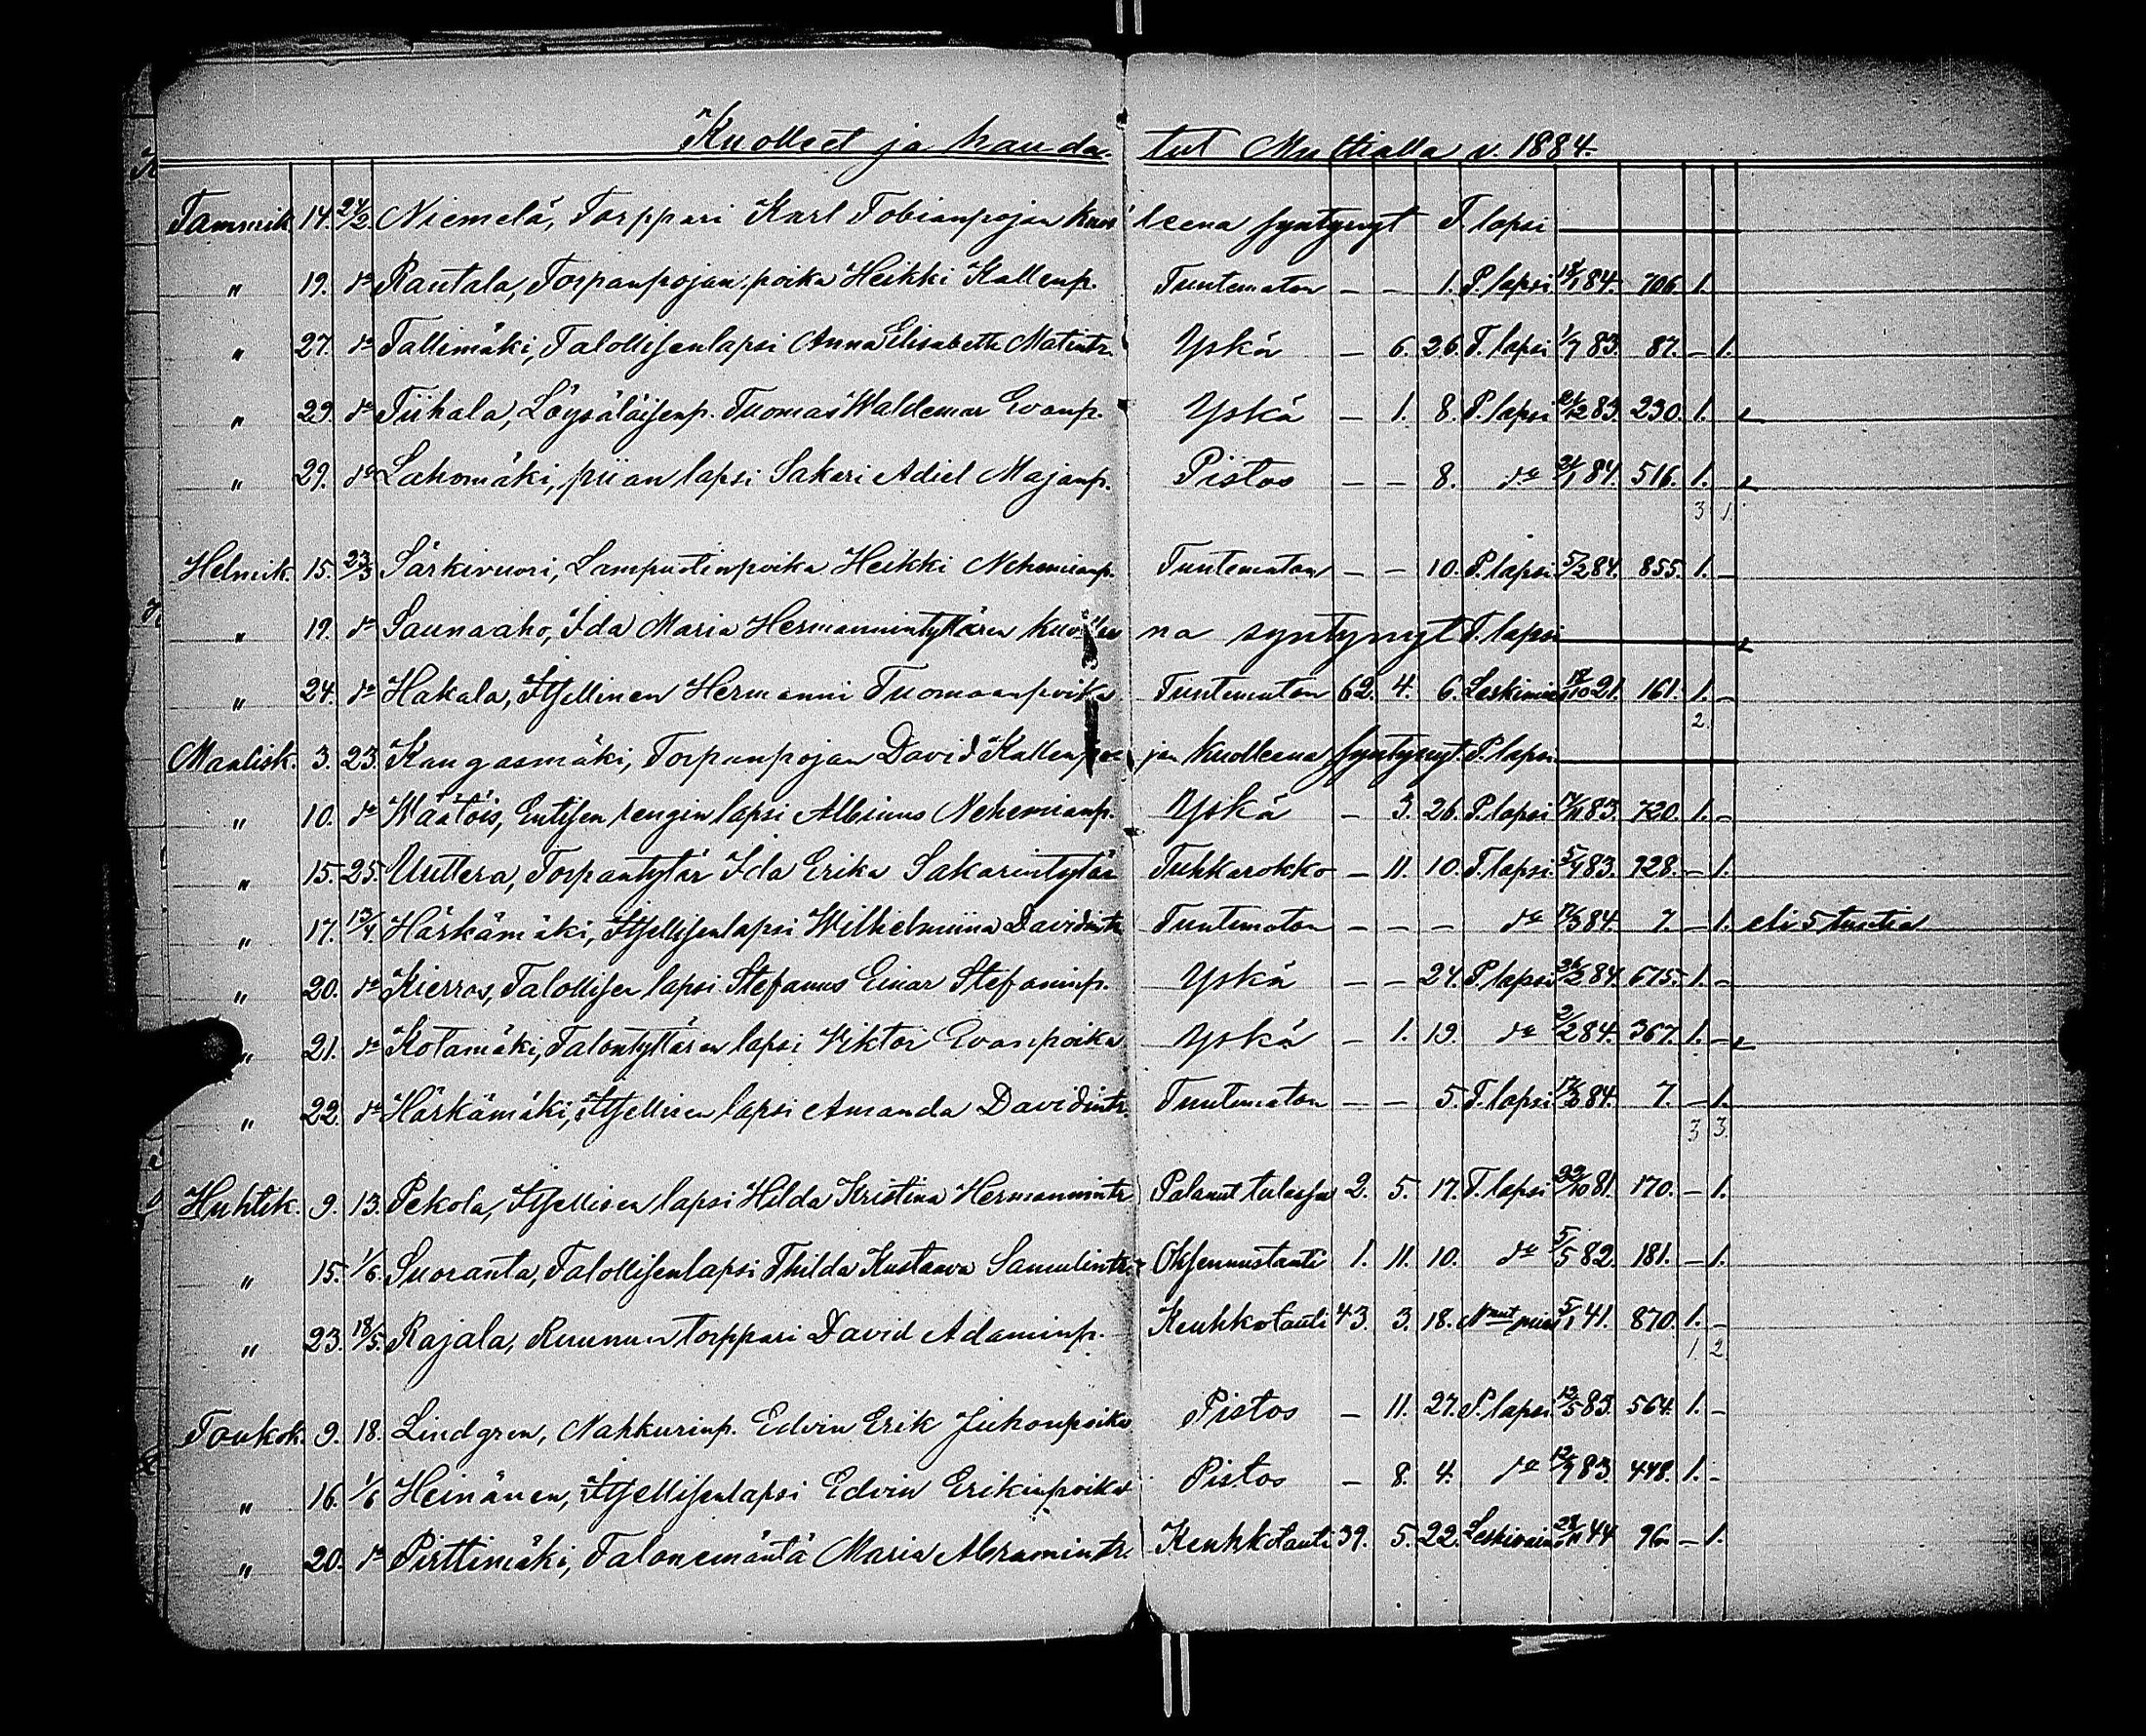 Kuolleet ja haudatut Multialla v. 1884.
Tammik. 14. 24/2. Niemelä, Torppari Karl Tobianpojan kuolleena syntynyt T. lapsi
" 19. do Rantala, Torpanpojan poika Heikki Kallenp. Tuntematon – – 1. P. lapsi 18/1 84. 706. 1.
" 27. do Tallimäki, Talollisenlapsi Anna Elisabeth Matintr. Yskä – 6. 26. T. lapsi 1/7 83. 87. – 1.
" 29. do Tiihala, Löysäläisenp. Tuomas Waldemar Evanp. Yskä – 1. 8. P. lapsi 21/12 83. 230. 1.
" 29. do Lahomäki, piian lapsi Sakari Adiel Majanp. Pistos – – 8. do 21/1 84. 516. 1.
3 1.
Helmik. 15. 23/3 Särkivuori, Lampuotinpoika Heikki Nehemianp. Tuntematon – – 10. P. lapsi 5/2 84. 855. 1. –
" 19. do Saunaaho, Ida Maria Hermannintyttären kuolleena syntynyt T. lapsi
" 24. do Hakala, Itsellinen Hermanni Tuomaanpoika Tuntematon 62. 4. 6. Leskimies 18/10 21. 161. 1. –
2.
Maalisk. 3. 23. Kangasmäki, Torpanpojan David Kallenpojan kuolleena syntynyt P. lapsi
" 10. do Wäätöis, Entisen rengin lapsi Albinus Nehemianp. Yskä – 3. 26. P. lapsi 14/11 83. 720. 1. –
" 15. 25. Uuttera, Torpantytär Ida Erika Sakarintytär Tuhkarokko – 11. 10. T. lapsi 5/4 83. 728. – 1.
" 17. 13/4 Härkämäki, Itsellisenlapsi Wilhelmiina Davidintr. Tuntematon – – – do 17/3 84. 7. – 1. eli 5 tuntia
" 20. do Kierros, Talollisen lapsi Stefanus Einar Stefaninp. Yskä – – 24. P. lapsi 26/2 84. 675. 1. –
" 21. do Kotamäki, Talontyttären lapsi Viktor Evanpoika Yskä – 1. 19. do 2/2 84. 367. 1. –
" 22. do Härkämäki, Itsellisen lapsi Amanda Davidintr. Tuntematon – – 5. T. lapsi 17/3 84. 7. – 1.
3 3.
Huhtik. 9. 13. Pekola, Itsellisen lapsi Hilda Kristiina Hermannintr. Palanut tulessa 2. 5. 17. T. lapsi 22/10 81. 170. – 1.
" 15. 1/6. Suoranta, Talollisenlapsi Thilda Kustaava Samulintr. Oksennustauti 1. 11. 10. do 5/5 82. 181. – 1.
" 23. 18/5. Rajala, Ruunun torppari David Adaminp. Keuhkotauti 43. 3. 18. Naut mies 5/1 41. 870. 1. –
1. 2.
Toukok. 9. 18. Lindgren, Nahkurinp. Edvin Erik Juhonpoika Pistos – 11. 27. P. lapsi 12/5 83. 564. 1. –
" 16. 1/6 Heinänen, Itsellisenlapsi Edvin Erikinpoika Pistos – 8. 4. do 12/9 83. 448. 1. –
" 20. do Pirttimäki, Talonemäntä Maria Abramintr. Keuhkotauti 39. 5. 22. Leskivaimo 28/11 44 96. – 1.